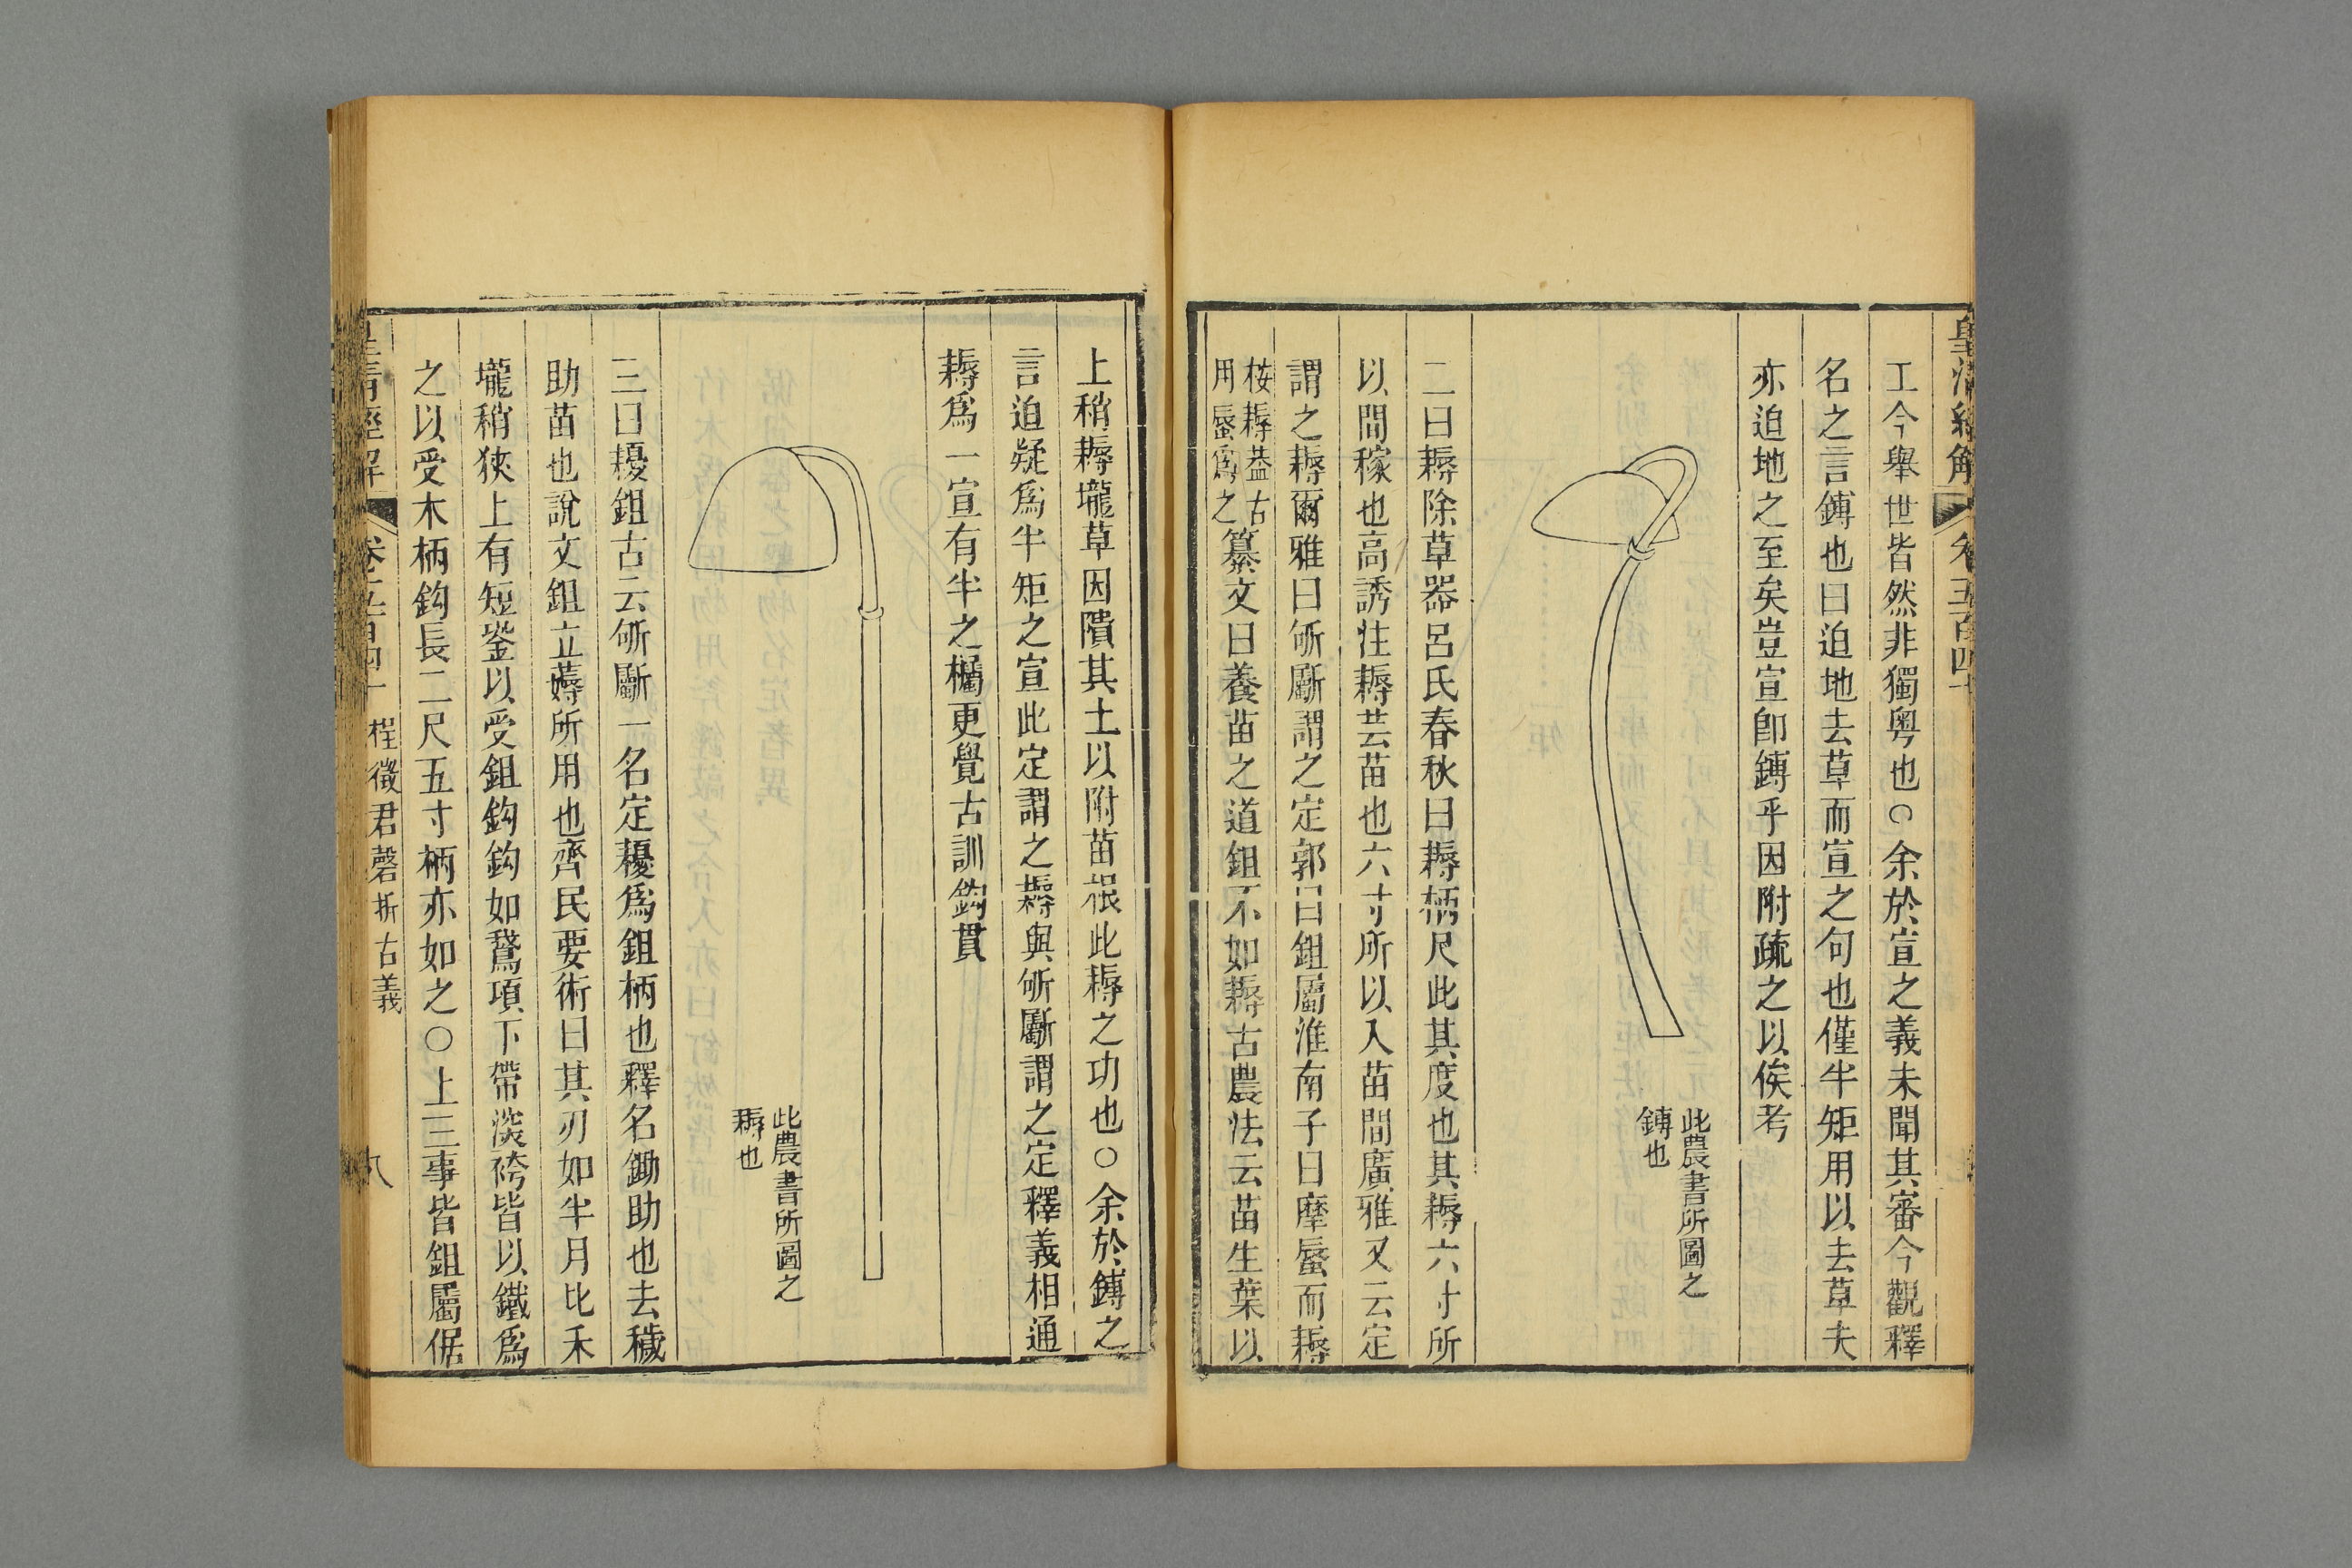 皇清經解 卷五百四十
工今舉世皆然非獨粵也○余於宣之義未聞其審今觀釋
名之言鎛也曰迫地去草而宣之句也僅半矩用以去草夫
亦迫地之至矣豈宣卽鎛乎因附疏之以俟考
此農書所圖之
鎛也
二曰耨除草器呂氏春秋曰耨柄尺此其度也其耨六寸所
以間稼也高誘注耨芸苗也六寸所以入苗間廣雅又云定
謂之耨爾雅曰斫斸謂之定郭曰鉏屬淮南子曰摩蜃而耨
桉耨葢古
用蜃爲之
纂文曰養苗之道鉏不如耨古農法云苗生葉以
上稍耨壠草因隤其土以附苗根此耨之功也○余於鎛之
言迫疑爲半矩之宣此定謂之耨與斫斸謂之定釋義相通
耨爲一宣有半之欘更覺古訓鉤貫
此農書所圖之
耨也
三曰耰鉏古云斫斸一名定耰爲鉏柄也釋名鋤助也去穢
助苗也說文鉏立薅所用也齊民要術曰其刃如半月比禾
壠稍狹上有短銎以受鉏鉤鉤如鵞項下帶深袴皆以鐵爲
之以受木柄鉤長二尺五寸柄亦如之○上三事皆鉏屬倨
皇清經解 卷五百四十 程徵君磬折古義 八